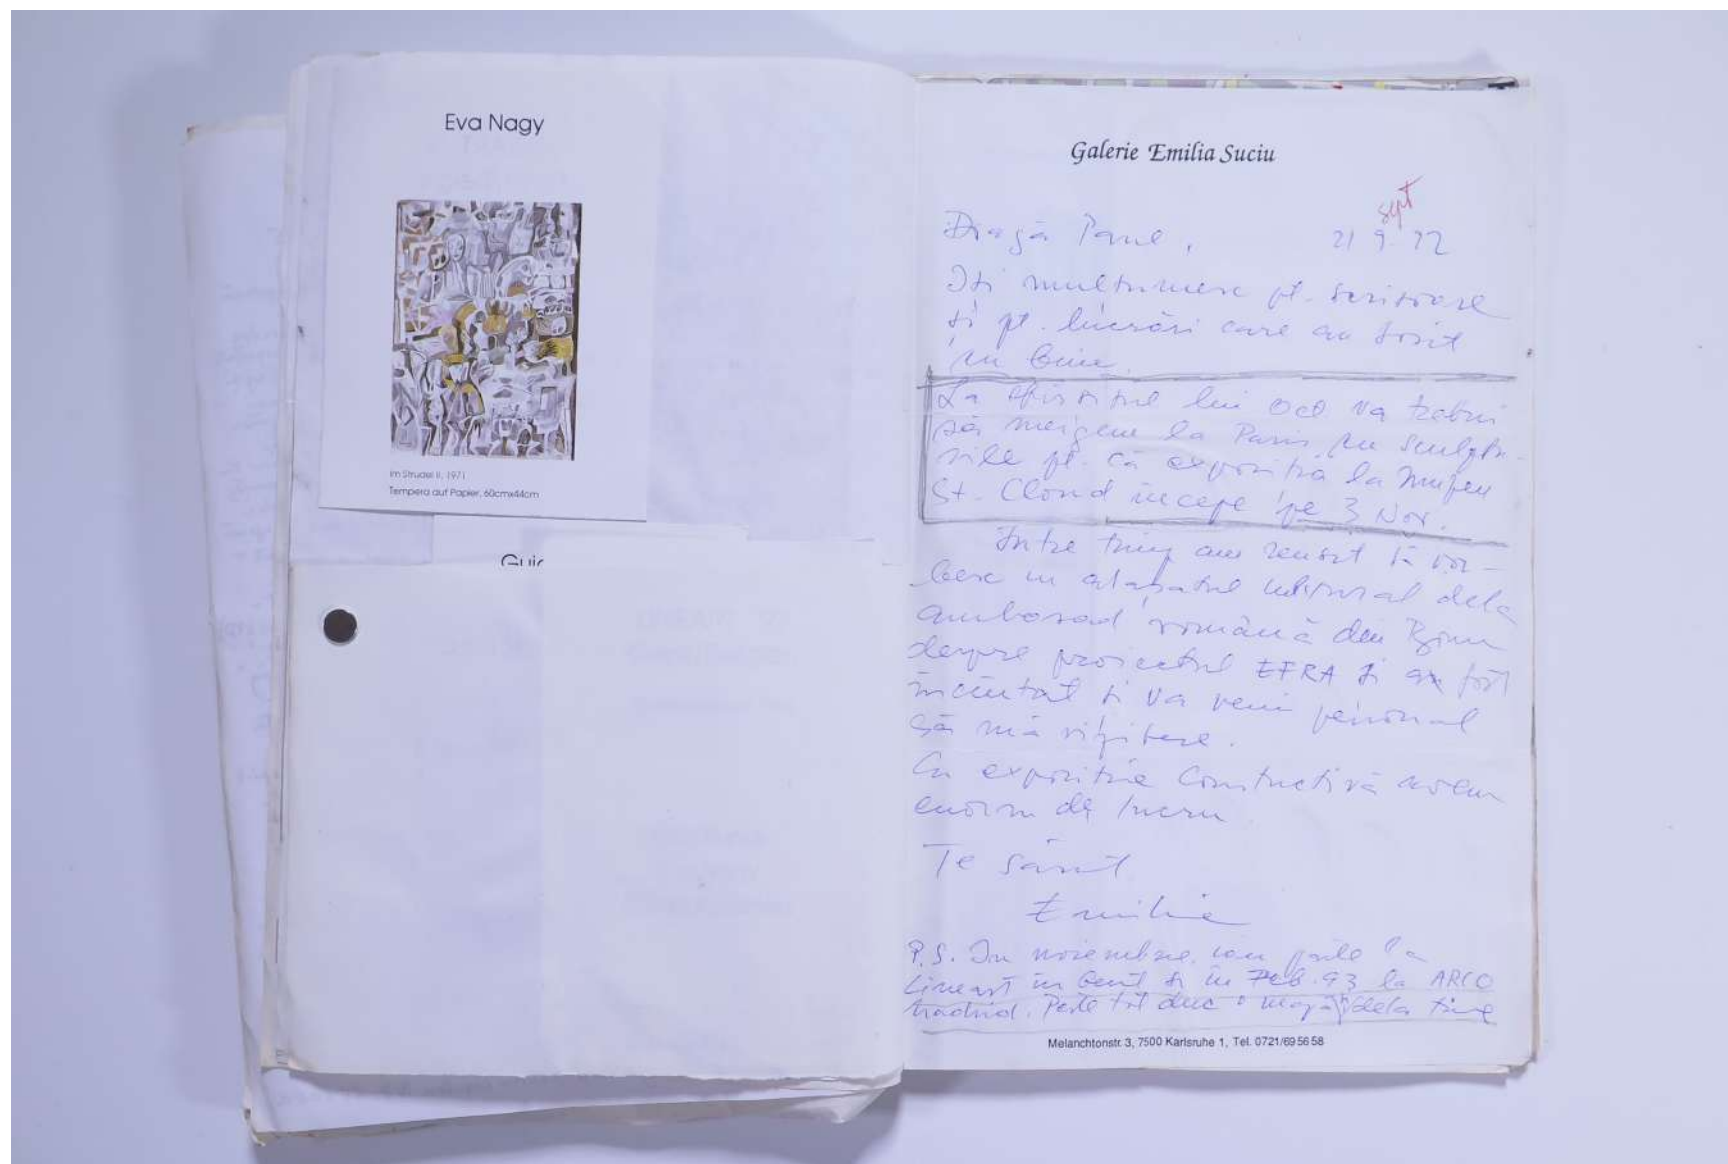 Eva Nagy
Im Strudel II, 1971
Tempera auf Papier, 60cmx44cm
Galerie Emilia Suciu
sept
Dragă Paul, 21 9. 92
Iți multumesc pt. scrisoare
și pt. lucrări care au sosit
cu bine.
La sfirsitul lui Oct va trebui
să mergem la Paris cu sculptu-
rile pt. că expoziția la Muzeu
St. Cloud incepe pe 3 Nov.
Intre timp am reusit să vor-
besc cu atașatul cultural dela
ambasad română din Bonn
despre proiectul EFRA și a fost
incintat și va veni personal
să mă viziteze.
Cu expozitia Constructivă avem
enorm de lucru
Te sărut
Emilia
P.S. In noiembrie la
Lineart in Gent și in Feb. 93 la ARCO
Madrid. Peste tot duc o dela tine
Melanchtonstr. 3, 7500 Karlsruhe 1, Tel. 0721/69 56 58